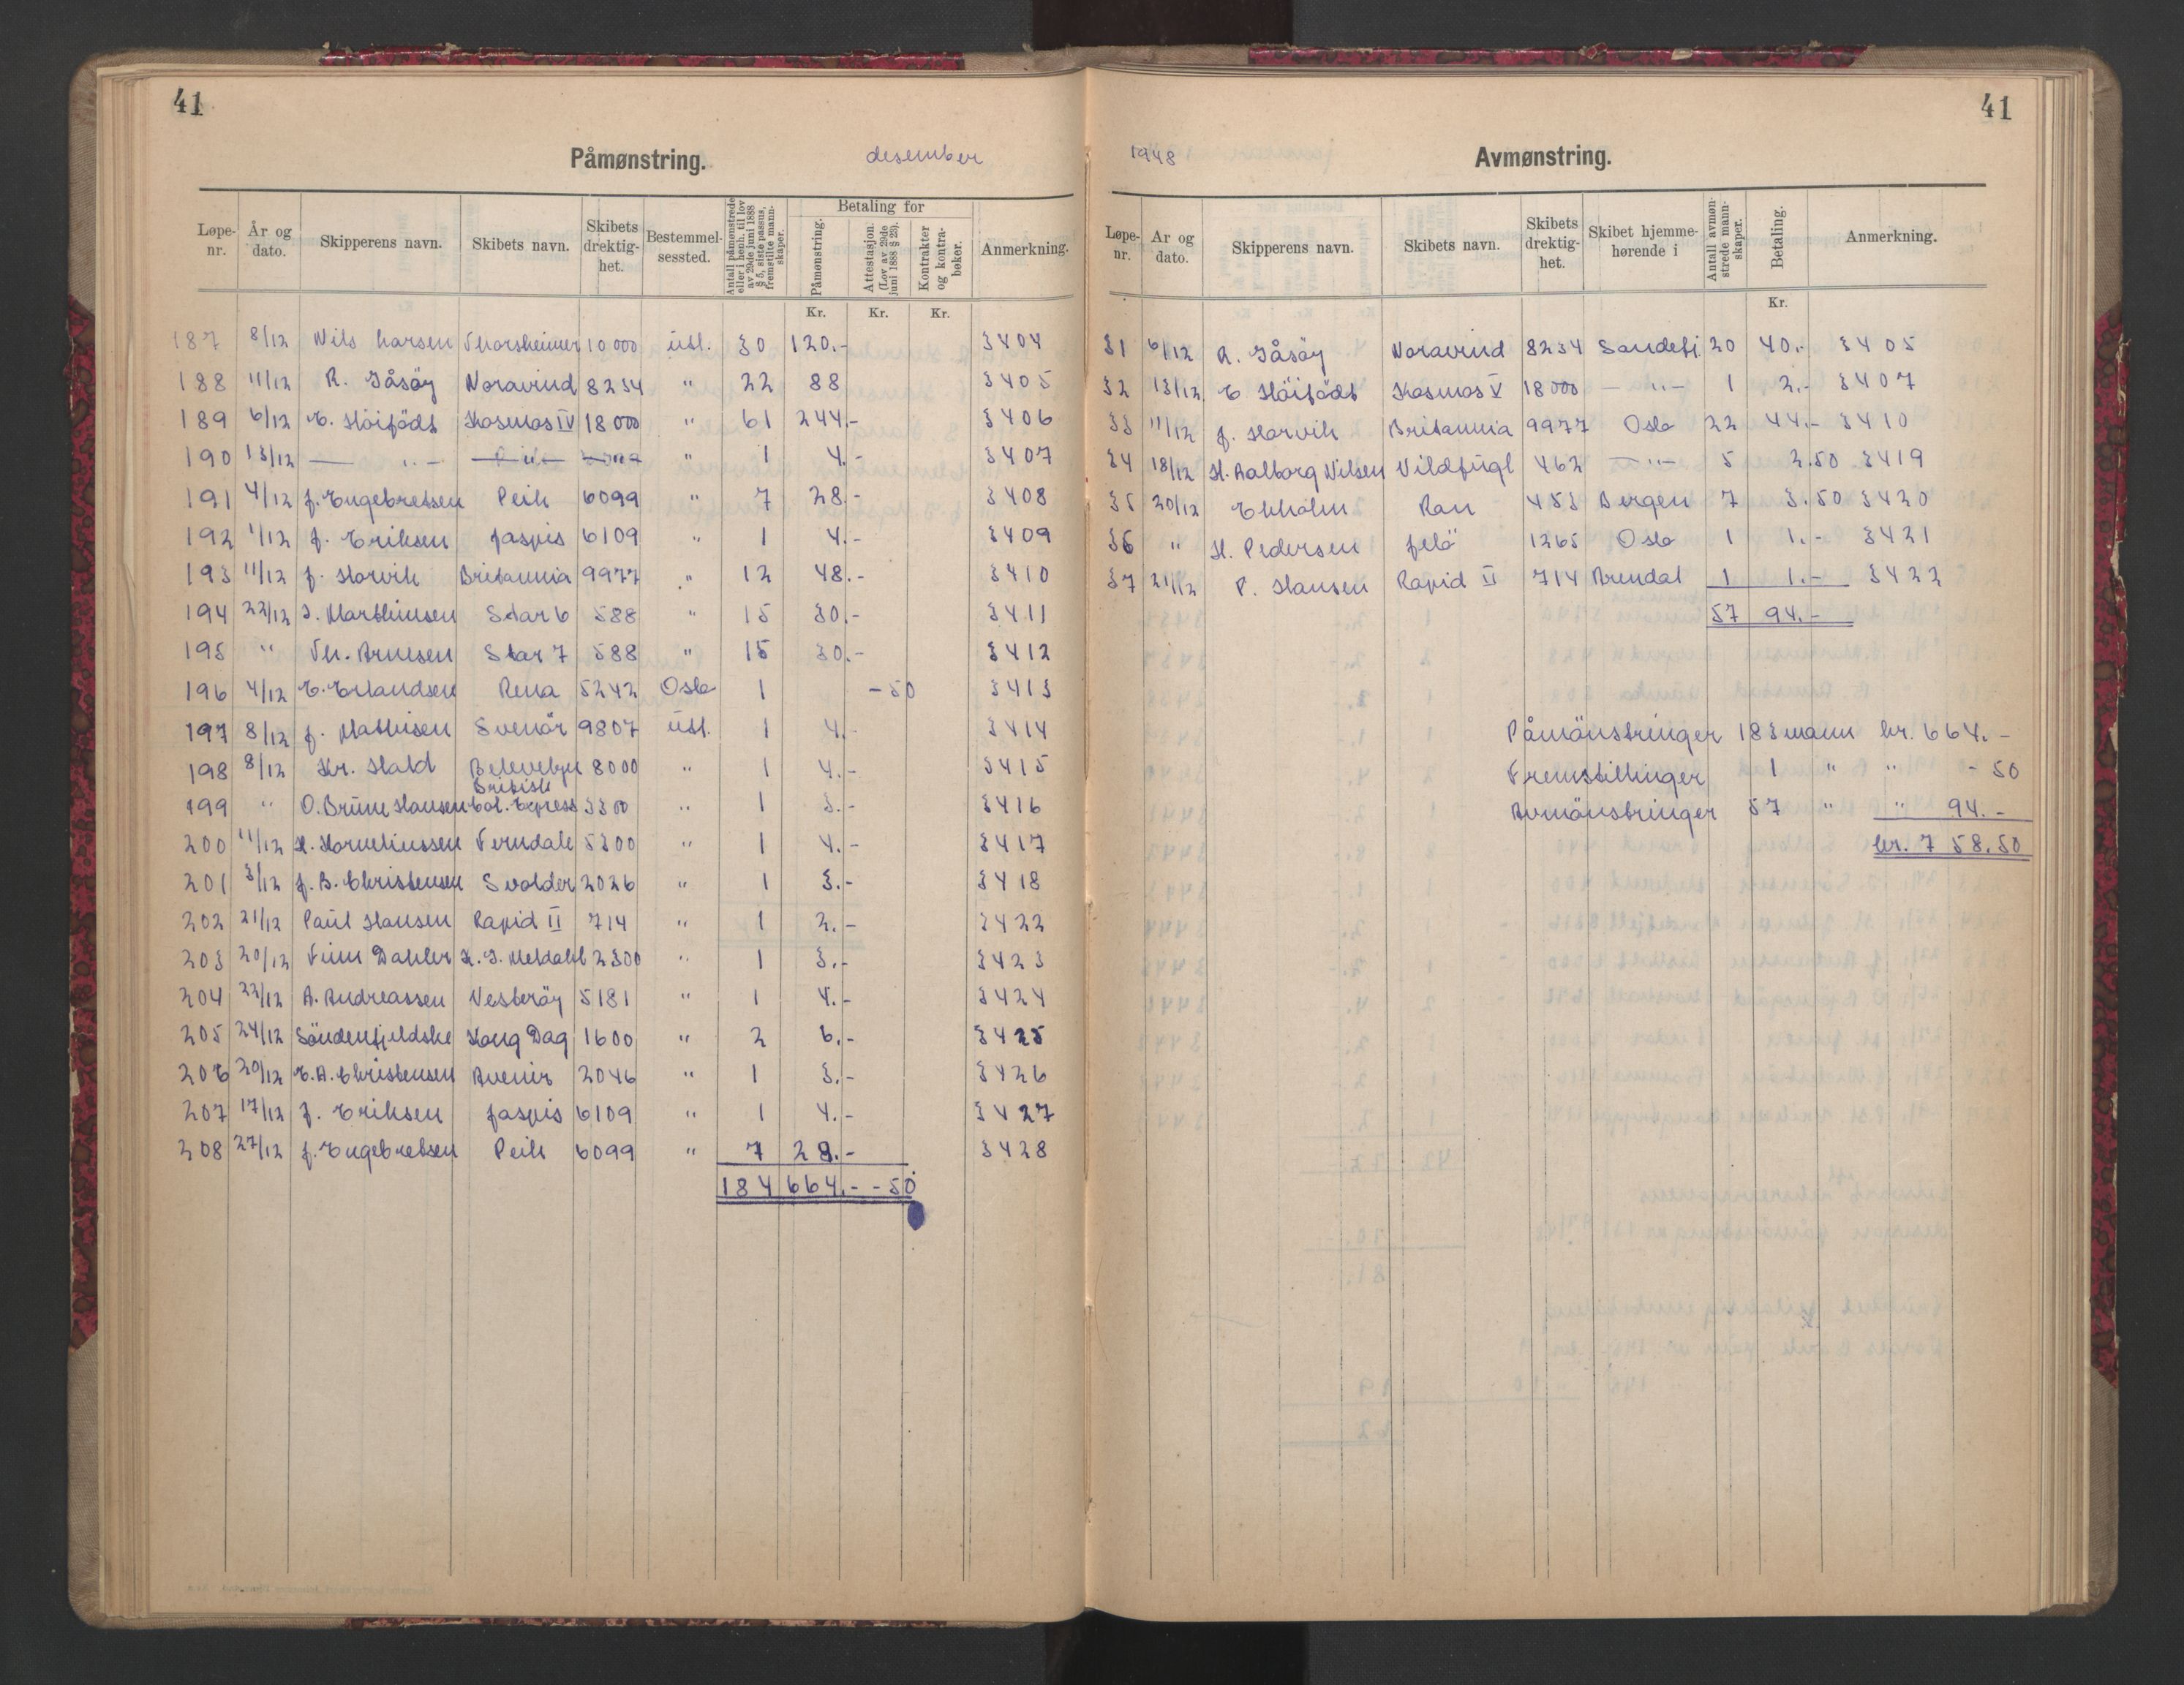 41
Påmønstring. desember
Løpe-nr. År og dato. Skipperens navn. Skibets navn. Skibets drektig-het. Bestemmel-sessted. Antall påmønstrede eller i henh. til lov av 29de juni 1888 § 5, siste passus, fremstilte mann-skaper. Betaling for Påmønstring. Attestasjon. (Lov av 29de juni 1888 § 23). Kontrakter og kontra-bøker. Anmerkning.
Kr. Kr. Kr.
187 8/12 Nils Larsen Thorsheimer 10000 utl. 30 120.- 3404
188 11/12 R. Gåsöy Noravind 8234 " 22 88 3405
189 6/12 E. Höifödt Kosmos IV 18000 " 61 244.- 3406
190 13/12 — " — — " — " 1 4.- 3407
191 4/12 J. Engebretsen Peik 6099 " 7 28.- 3408
192 1/12 J. Eriksen Jaspis 6109 " 1 4.- 3409
193 11/12 J. Horvik Britannia 9977 " 12 48.- 3410
194 22/12 S. Marthinsen Star 6 588 " 15 30.- 3411
195 " Th. Arnesen Star 7 588 " 15 30.- 3412
196 4/12 E. Erlandsen Rena 5242 Oslo 1 -50 3413
197 8/12 J. Mathisen Svenör 9807 utl. 1 4.- 3414
198 8/12 Kr. Hald Belevelyn 8000 " 1 4.- 3415
199 " O. Brune Hansen British Col. Express 3300 " 1 3.- 3416
200 11/12 H. Korneliussen Ferndale 5300 " 1 4.- 3417
201 3/12 J. B. Christensen Svolder 2026 " 1 3.- 3418
202 21/12 Paul Hansen Rapid II 714 " 1 2.- 3422
203 20/12 Finn Dahler K. G. Meldahl 2300 " 1 3.- 3423
204 22/12 A. Andreassen Vesteröy 5181 " 1 4.- 3424
205 24/12 Söndenfjeldske Kong Dag 1600 " 2 6.- 3425
206 20/12 E. A. Christensen Avenir 2046 " 1 3.- 3426
207 17/12 J. Eriksen Jaspis 6109 " 1 4.- 3427
208 27/12 J. Engebretsen Peik 6099 " 7 28.- 3428
184 664.- -50
41
1948 Avmønstring.
Løpe-nr. År og dato. Skipperens navn. Skibets navn. Skibets drektig-het. Skibet hjemme-hørende i Antall avmøn-strede mann-skaper. Betaling. Anmerkning.
Kr.
31 6/12 R. Gåsöy Noravind 8234 Sandefj. 20 40.- 3405
32 13/12 E Höifödt Kosmos V 18000 — " — 1 2.- 3407
33 11/12 J. Horvik Britannia 9977 Oslo 22 44.- 3410
34 18/12 H. Aalborg Nilsen Vildfugl 462 — " — 5 2.50 3419
35 20/12 Ekholm Ran 453 Bergen 7 3.50 3420
36 " H. Pedersen Jelö 1265 Oslo 1 1.- 3421
37 21/12 P. Hansen Rapid II 714 Arendal 1 1.- 3422
57 94.-
Påmönstringer 183 mann kr. 664.-
Fremstillinger 1 " " -50
Avmönstringer 57 " " 94.-
kr. 758.50